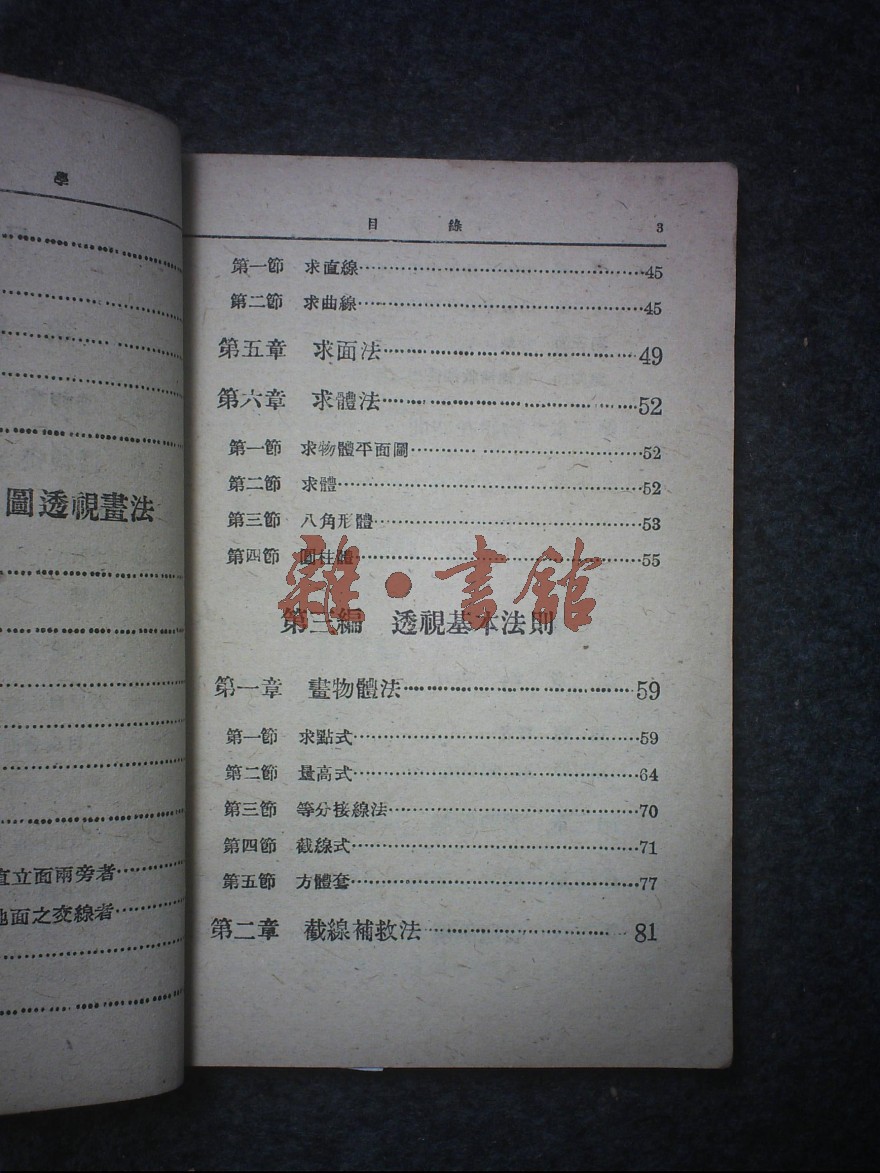 學
圖透視畫法
直立面兩旁者
地面之交線者
目 錄 3
第一節 求直線 45
第二節 求曲線 45
第五章 求面法 49
第六章 求體法 52
第一節 求物體平面圖 52
第二節 求體 52
第三節 八角形體 53
第四節 圓柱體 55
雜·書館
第三編 透視基本法則
第一章 畫物體法 59
第一節 求點式 59
第二節 量高式 64
第三節 等分接線法 70
第四節 截線式 71
第五節 方體套 77
第二章 截線補救法 81